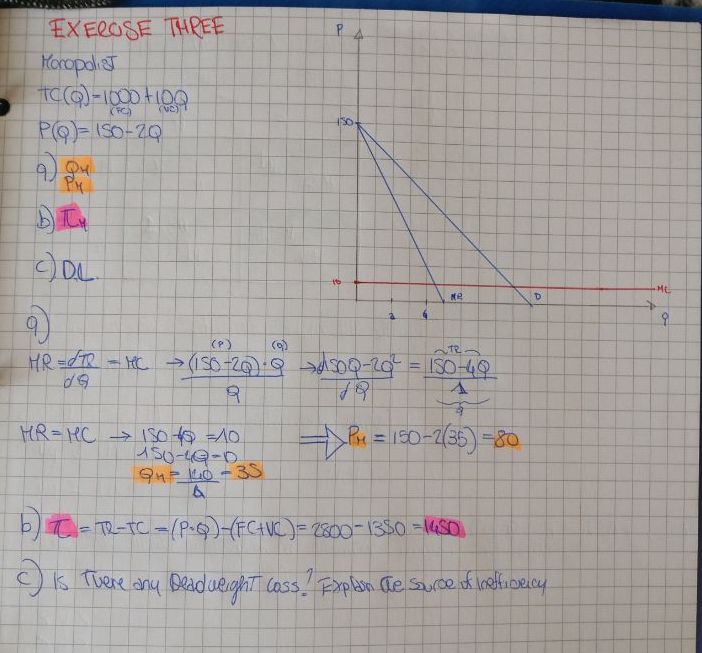 EXERCISE THREE
Monopolist
TC(Q)=1000+10Q
(FC) (VC)
P(Q)=150-2Q
a) QM
PM
b) πM
c) D.L.
P
150
10
MC
MR
D
Q
a)
(P) (Q)
MR = dTR/dQ = MC → (150-2Q)·Q / Q → d150Q-2Q² / dQ = 150-4Q / 1
TR
MR=MC → 150-4Q=10
150-4Q=0
QM = 140/4 = 35
⇒ PM = 150-2(35) = 80
b) π = TR-TC = (P·Q)-(FC+VC) = 2800-1350 = 1450
c) Is There any Deadweight Loss? Explain the source of inefficiency